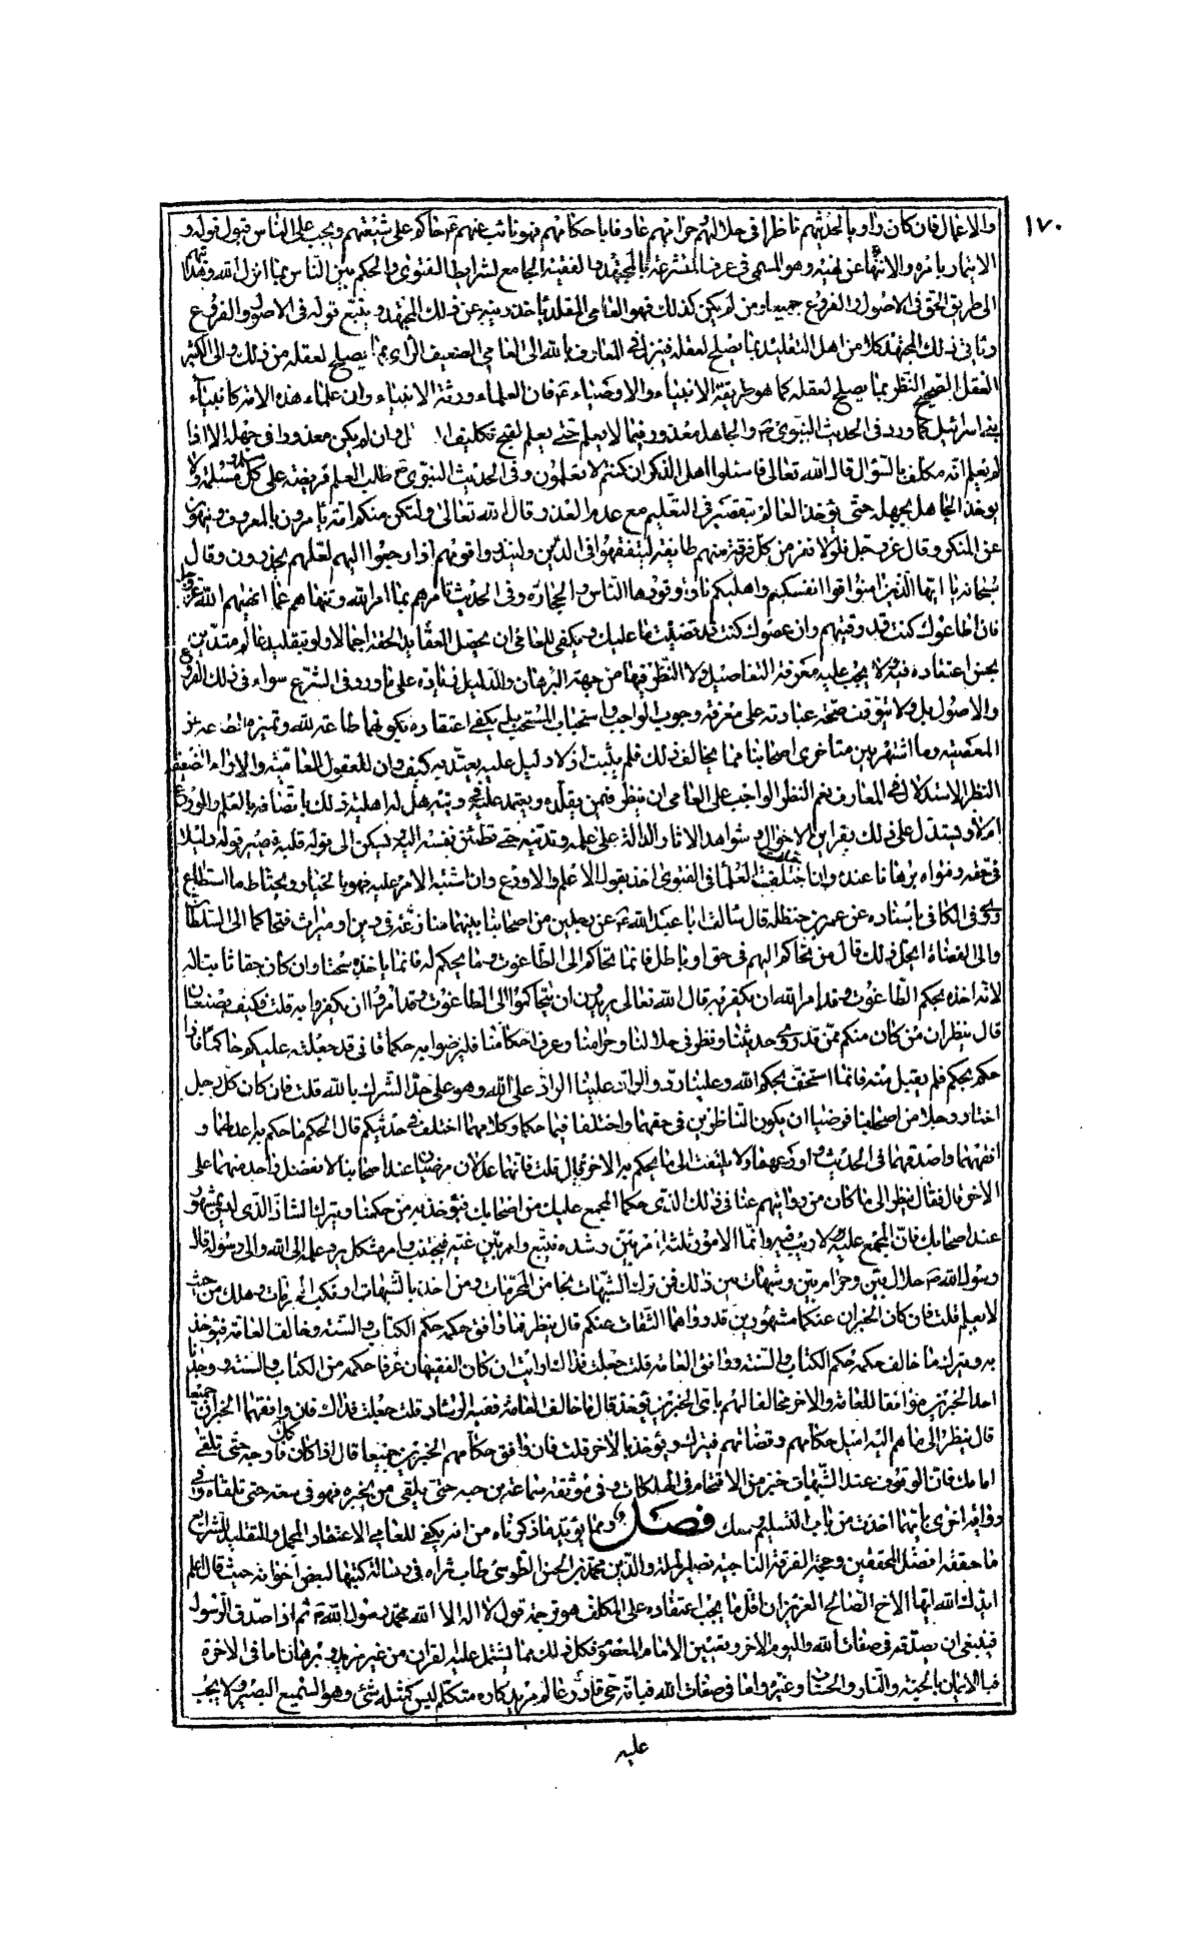 ١٧٠
والاعمال فان كان راويا لحديثهم ناظرا فى حلالهم وحرامهم عارفا باحكامهم فهو نائب عنهم ع حاكم على شيعتهم ويجب على الناس قبول قوله و
الايتمار بامره والانتهاء عن نهيه وهو المسمى فى عرف المتشرعة بالمجتهد والفقيه الجامع لشرايط الفتوى والحكم بين الناس بما انزل الله وهذا
الى طريق الحق فى الاصول والفروع جميعا ومن لم يكن كذلك فهو العامى المقلد ياخذ دينه عن ذلك المجتهد ويتبع قوله فى الاصول والفروع
وياتى ذلك المجتهد كلا من اهل التقليد بما يصلح لعقله فينزل العارف بالله الى العامى الضعيف الراى بما يصلح لعقله من ذلك والى الكبير
العقل الصحيح النظر بما يصلح لعقله كما هو طريقة الانبياء والاوصياء ع فان العلماء ورثة الانبياء وان علماء هذه الامة كانبياء
بنى اسرائيل كما ورد فى الحديث النبوى ص والجاهل معذور فيما لا يعلم حتى يعلم لقبح تكليف وان لم يكن معذورا فى جهله الا اذا
لم يعلم انه مكلف بالسؤال قال الله تعالى فاسئلوا اهل الذكر ان كنتم لا تعلمون وفى الحديث النبوى ص طلب العلم فريضة على كل مسلم ومسلمة ولا
يوخذ الجاهل بجهله حتى يؤخذ العالم بتقصيره فى التعليم مع عدم العذر وقال الله تعالى ولتكن منكم امة يامرون بالمعروف وينهون
عن المنكر وقال عز وجل فلولا نفر من كل فرقة منهم طايفة ليتفقهوا فى الدين ولينذروا قومهم اذا رجعوا اليهم لعلهم يحذرون وقال
سبحانه يا ايها الذين امنوا قوا انفسكم واهليكم نارا وقودها الناس والحجارة وفى الحديث تامرهم بما امر الله وتنهاهم عما نهيهم الله عز وجل
فان اطاعوك كنت قد وقيتهم وان عصوك كنت قد قضيت ما عليك ويكفى للعامى ان يحصل العقايد الحقة اجمالا ولو بتقليد عالم متدين
يحسن اعتقاده فيه ولا يجب عليه معرفة التفاصيل ولا النظر فيها من جهة البرهان والدليل زيادة على ما ورد فى الشرع سواء فى ذلك الفروع
والاصول بل ولا يتوقف صحة عبادته على معرفة وجوب الواجب واستحباب المستحب بل يكفى اعتقاده بكونها طاعة لله وتميز الطاعة عن
المعصية وما اشتهر بين متاخرى اصحابنا مما يخالف ذلك فلم يثبت اذ لا دليل عليه يعتد به كيف وان للعقول العامية والاراء الضعيفة
النظر الاستدلالى فى المعارف نعم النظر الواجب على العامى ان ينظر فيمن يقلده ويعتمد عليه فى دينه هل له اهلية ذلك باتصافه بالعلم والورع
ام لا ويستدل على ذلك بقراين الاحوال وشواهد الاثار الدالة على علمه وتدينه حتى تطمئن نفسه اليه ويسكن الى قوله قلبه فيصير قوله دليلا
فى حقه وفتواه برهانا عنده واذا اختلفت العلما فى الفتوى اخذ بقول الاعلم والاورع وان اشتبه الامر عليه فهو بالخيار ويحتاط ما استطاع
روى فى الكافى باسناده عن عمر بن حنظلة قال سالت ابا عبد الله ع عن رجلين من اصحابنا بينهما منازعة فى دين او ميراث فتحاكما الى السلطان
والى القضاة ايحل ذلك قال من تحاكم اليهم فى حق او باطل فانما تحاكم الى الطاغوت وما يحكم له فانما ياخذه سحتا وان كان حقا ثابتا له
لانه اخذه بحكم الطاغوت وقد امر الله ان يكفر به قال الله تعالى يريدون ان يتحاكموا الى الطاغوت وقد امروا ان يكفروا به قلت فكيف يصنعان
قال ينظران من كان منكم ممن قد روى حديثنا ونظر فى حلالنا وحرامنا وعرف احكامنا فليرضوا به حكما فانى قد جعلته عليكم حاكما فاذا
حكم بحكم فلم يقبل منه فانما استخف بحكم الله وعلينا رد والراد علينا الراد على الله وهو على حد الشرك بالله قلت فان كان كل رجل
اختار رجلا من اصحابنا فرضيا ان يكونا الناظرين فى حقهما واختلفا فيما حكما وكلاهما اختلف فى حديثكم قال الحكم ما حكم به اعدلهما و
افقههما واصدقهما فى الحديث واورعهما ولا يلتفت الى ما يحكم به الاخر قال قلت فانهما عدلان مرضيان عند اصحابنا لا يفضل واحد منهما على
الاخر قال فقال ينظر الى ما كان من روايتهم عنا فى ذلك الذى حكما المجمع عليه من اصحابك فيؤخذ به من حكمنا ويترك الشاذ الذى ليس بمشهور
عند اصحابك فان المجمع عليه لا ريب فيه وانما الامور ثلثة امر بين رشده فيتبع وامر بين غيه فيجتنب وامر مشكل يرد علمه الى الله والى رسوله قال
رسول الله ص حلال بين وحرام بين وشبهات بين ذلك فمن ترك الشبهات نجا من المحرمات ومن اخذ بالشبهات ارتكب المحرمات وهلك من حيث
لا يعلم قلت فان كان الخبران عنكما مشهورين قد رواهما الثقات عنكم قال ينظر فما وافق حكمه حكم الكتاب والسنة وخالف العامة فيؤخذ
به ويترك ما خالف حكمه حكم الكتاب والسنة ووافق العامة قلت جعلت فداك ارايت ان كان الفقيهان عرفا حكمه من الكتاب والسنة ووجدنا
احد الخبرين موافقا للعامة والاخر مخالفا لهم باى الخبرين يؤخذ قال ما خالف العامة ففيه الرشاد قلت جعلت فداك فان وافقهما الخبران جميعا
قال ينظر الى ما هم اليه اميل حكامهم وقضاتهم فيترك ويؤخذ بالاخر قلت فان وافق حكامهم الخبرين جميعا قال اذا كان ذلك فارجه حتى تلقى
امامك فان الوقوف عند الشبهات خير من الاقتحام فى الهلكات وفى موثقة سماعة يرجيه حتى يلقى من يخبره فهو فى سعة حتى يلقاه وفى
رواية اخرى بايهما اخذت من باب التسليم وسعك فصل ومما يؤيد ما ذكرناه من انه يكفى للعامى الاعتقاد المجمل والتقليد للشرايع
ما حققه افضل المحققين وحجة الفرقة الناجية نصير الملة والدين محمد بن الحسن الطوسى طاب ثراه فى رسالة كتبها لبعض اخوانه حيث قال اعلم
ايدك الله ايها الاخ الصالح العزيز ان اقل ما يجب اعتقاده على المكلف هو ترجمة قول لا اله الا الله محمد رسول الله ص ثم اذا صدق الرسول
فينبغى ان يصدقه فى صفات الله واليوم الاخر وتعيين الامام المعصوم فكل ذلك مما يشتمل عليه القران من غير مزيد وبرهان اما فى الاخرة
فبالايمان بالجنة والنار والحساب وغيره واما فى صفات الله فبانه حى قادر عالم مريد كاره متكلم ليس كمثله شئ وهو السميع البصير ولا يجب
عليه